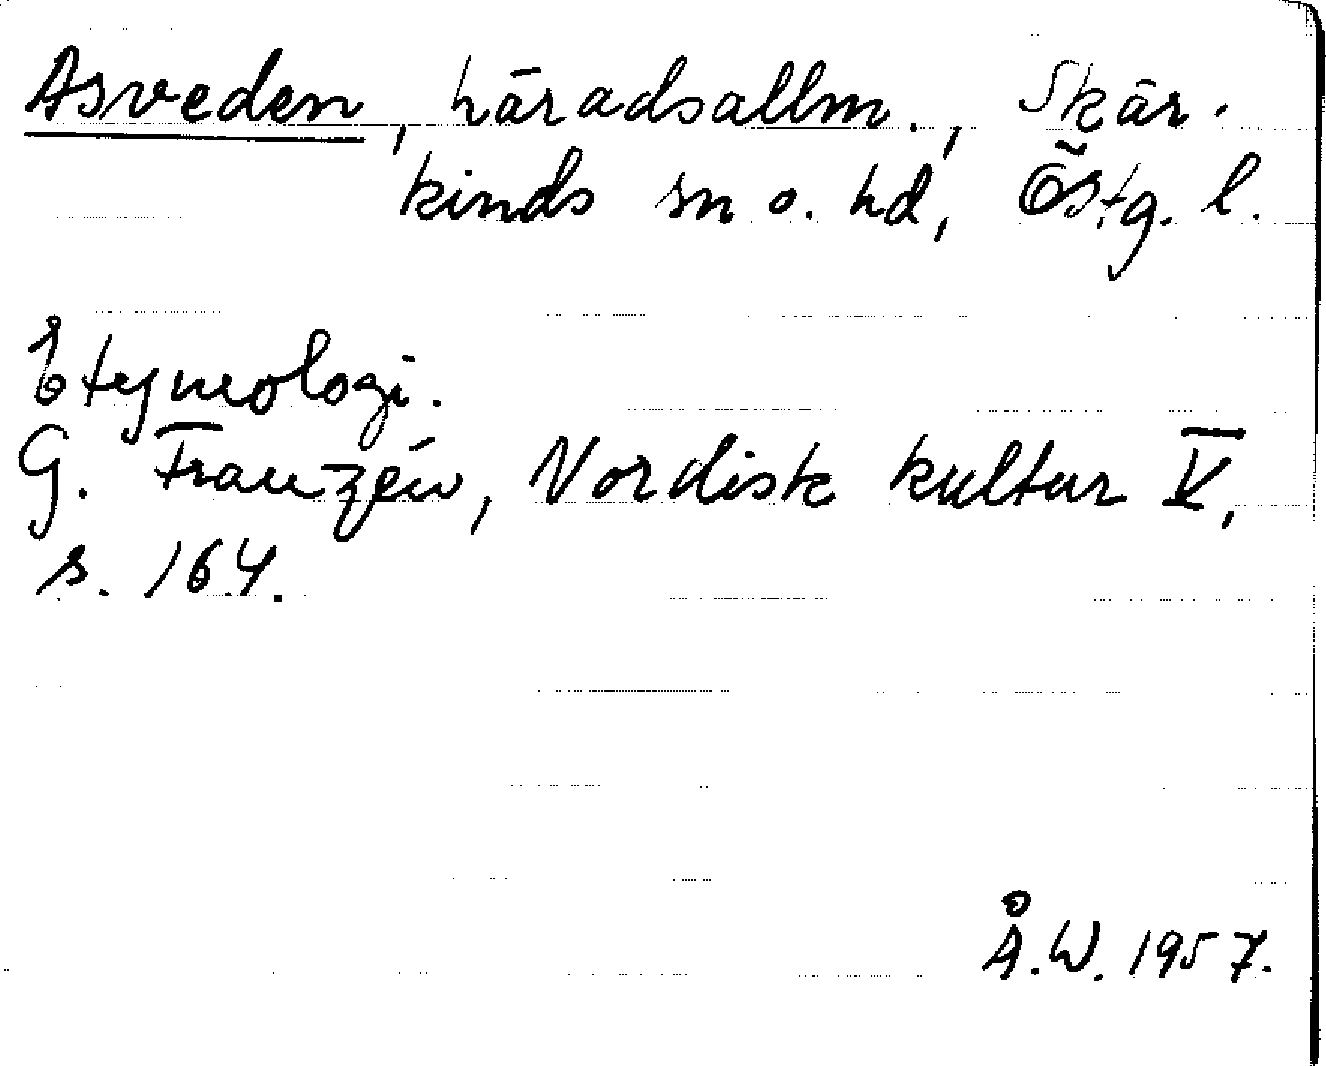 Asveden, häradsallm., Skär-
kinds sn o. hd, Östg. l.
Etymologi.
G. Franzén, Nordisk kultur V,
s. 164.
Å.W. 1957.